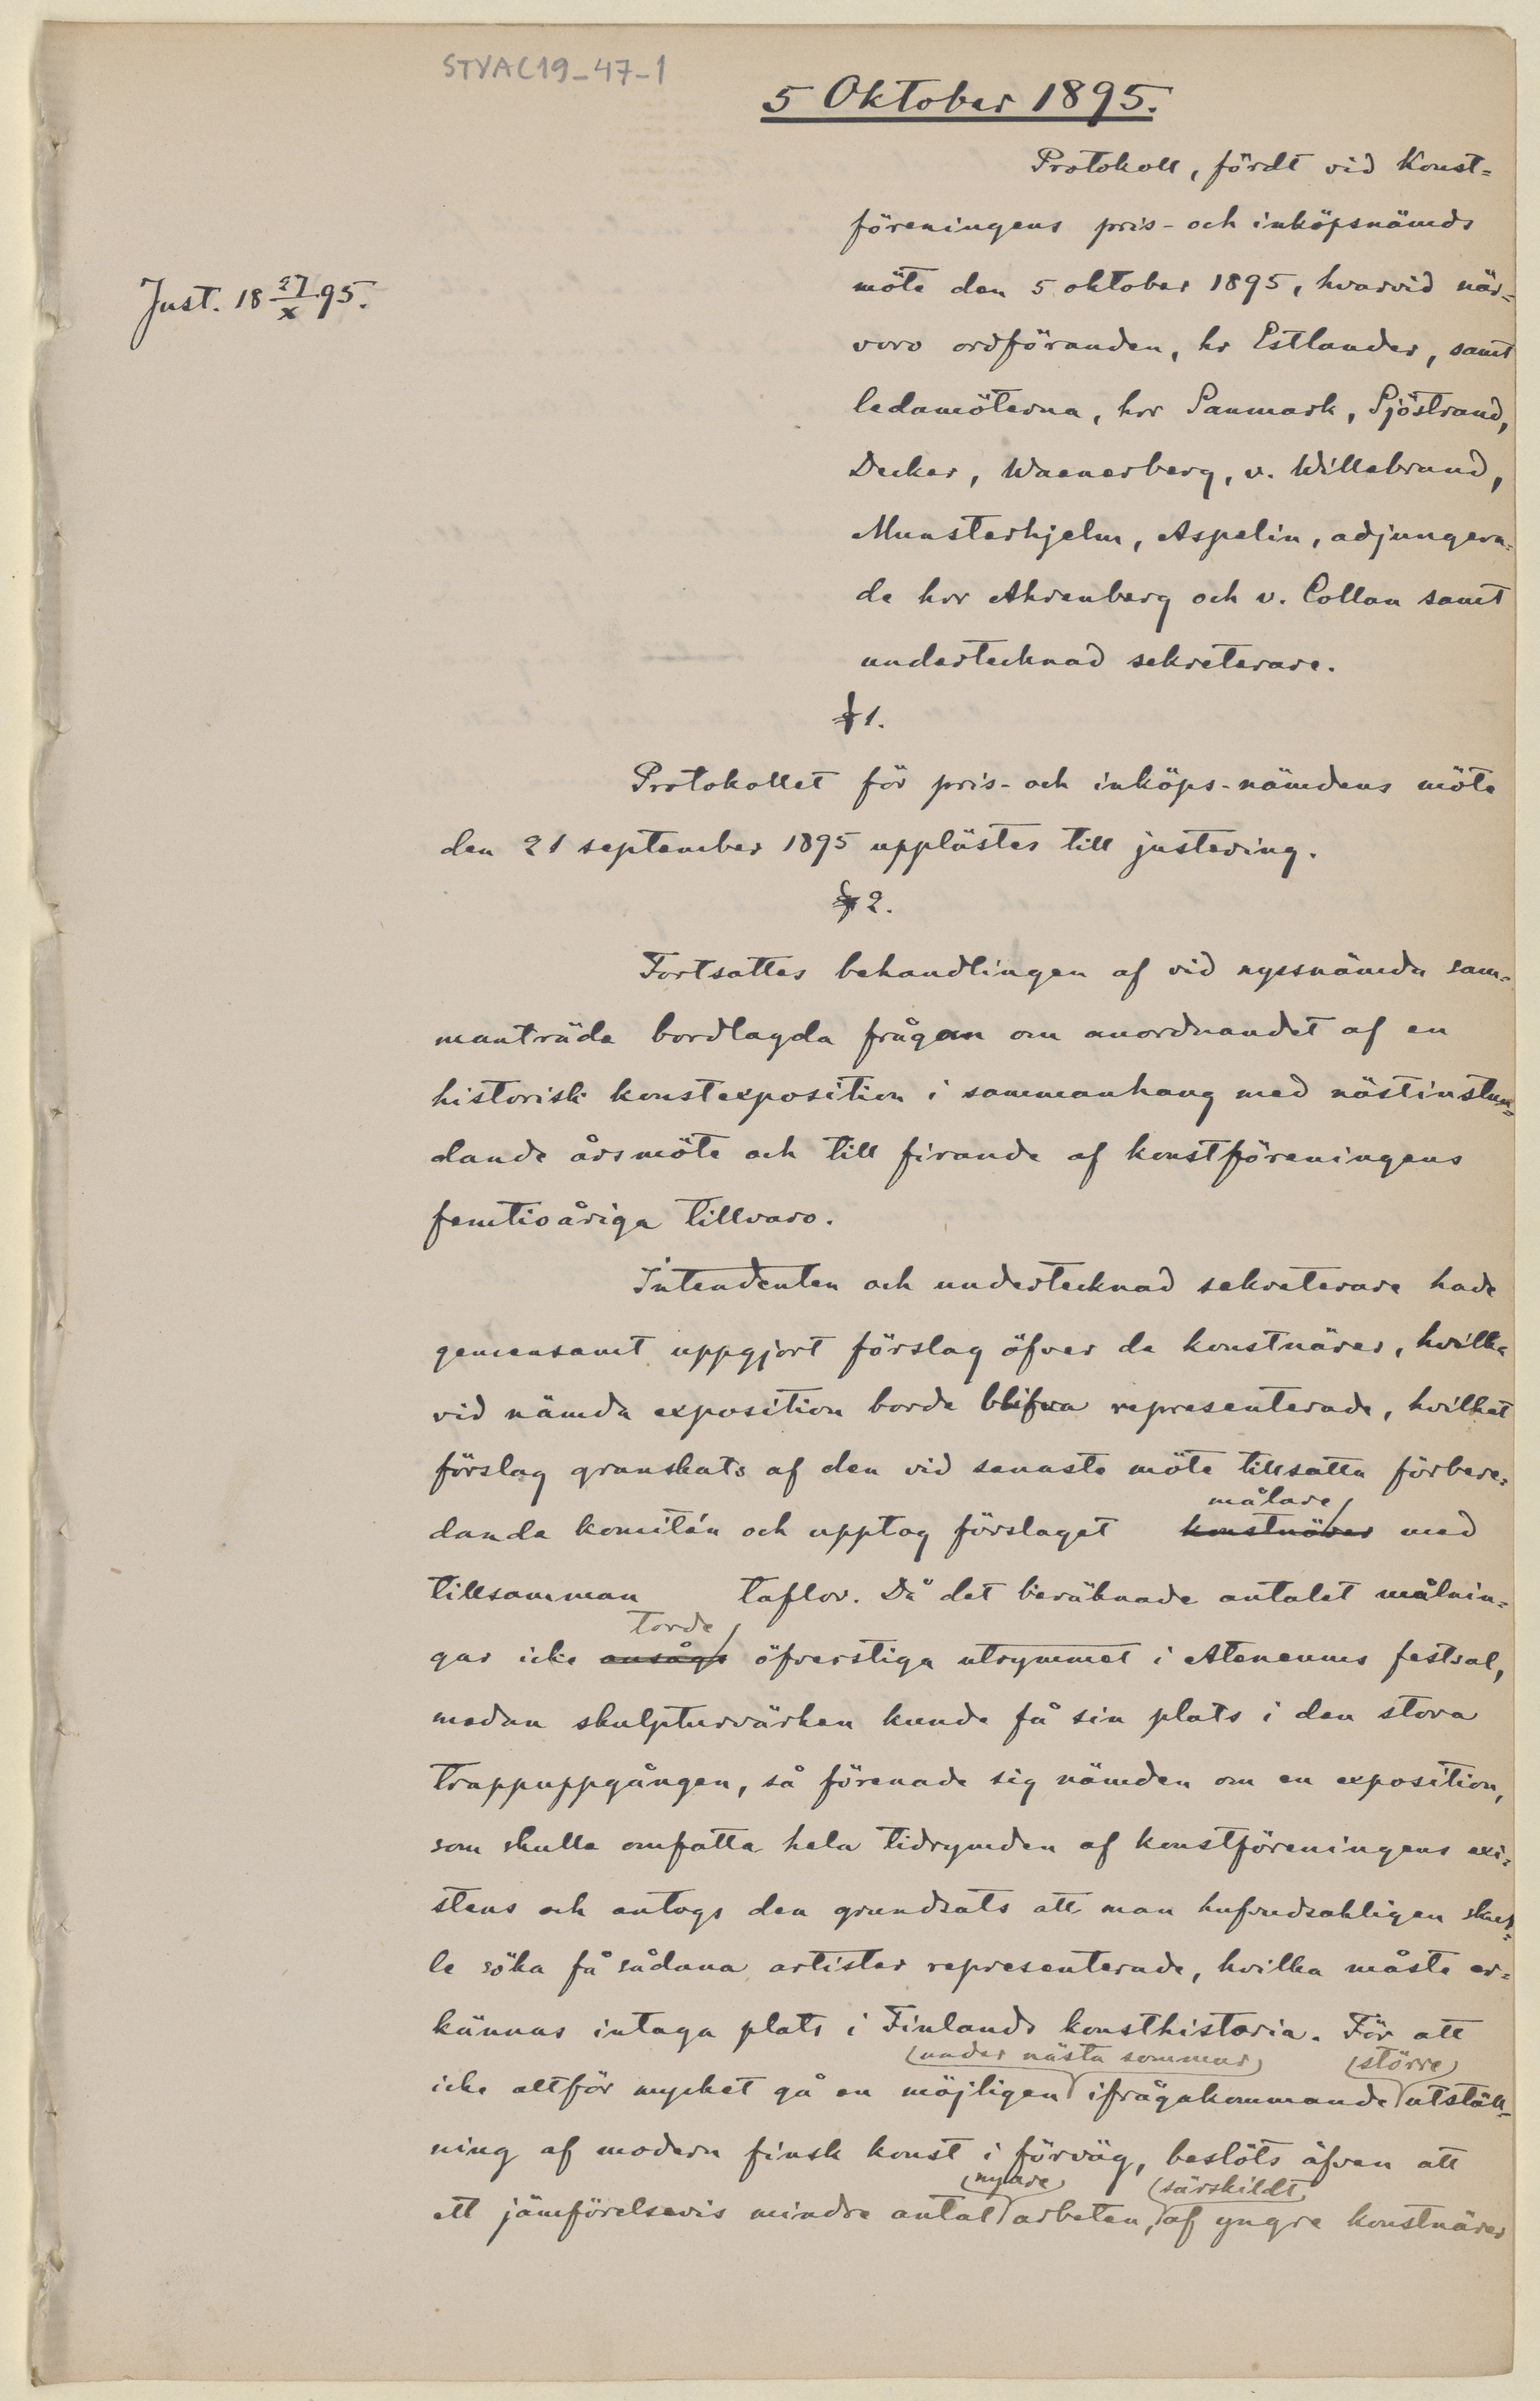 STYAC19_47_1
5 Oktober 1895.
Just. 18 27/X 95.
Protokoll, fördt vid Konst=
föreningens pris- och inköpsnämds
möte den 5 oktober 1895, hvarvid när=
voro ordföranden, hr Estlander, samt
ledamöterna, hrr Sanmark, Sjöstrand,
Decker, Waenerberg, v. Willebrand,
Munsterhjelm, Aspelin, adjungera=
de hrr Ahrenberg och v. Collan samt
undertecknad sekreterare.
§ 1.
Protokollet för pris- och inköps-nämdens möte
den 21 september 1895 upplästes till justering.
§ 2.
Fortsattes behandlingen af vid nyssnämda sam=
manträde bordlagda frågan om anordnandet af en
historisk konstexposition i sammanhang med nästinstun=
dande årsmöte och till firande af konstföreningens
femtioåriga tillvaro.
Intendenten och undertecknad sekreterare hade
gemensamt uppgjort förslag öfver de konstnärer, hvilka
vid nämda exposition borde blifva representerade, hvilket
förslag granskats af den vid senaste möte tillsatta förbere=
målare
danda komitén och upptog förslaget konstnärer med
tillsamman taflor. Då det beräknade antalet målnin=
torde
gar icke ansågs öfverstiga utrymmet i Ateneums festsal,
medan skulpturvärken kunde få sin plats i den stora
trappuppgången, så förenade sig nämden om en exposition,
som skulle omfatta hela tidrymden af konstföreningens exi=
stens och antogs den grundsats att man hufvudsakligen skul=
le söka få sådana artister representerade, hvilka måste er=
kännas intaga plats i Finlands konsthistoria. För att
(under nästa sommar) (större)
icke altför mycket gå en möjligen ifrågakommande utställ=
ning af modern finsk konst i förväg, beslöts äfven att
(nyare) (särskildt)
ett jämförelsevis mindre antal arbeten, af yngre konstnärer